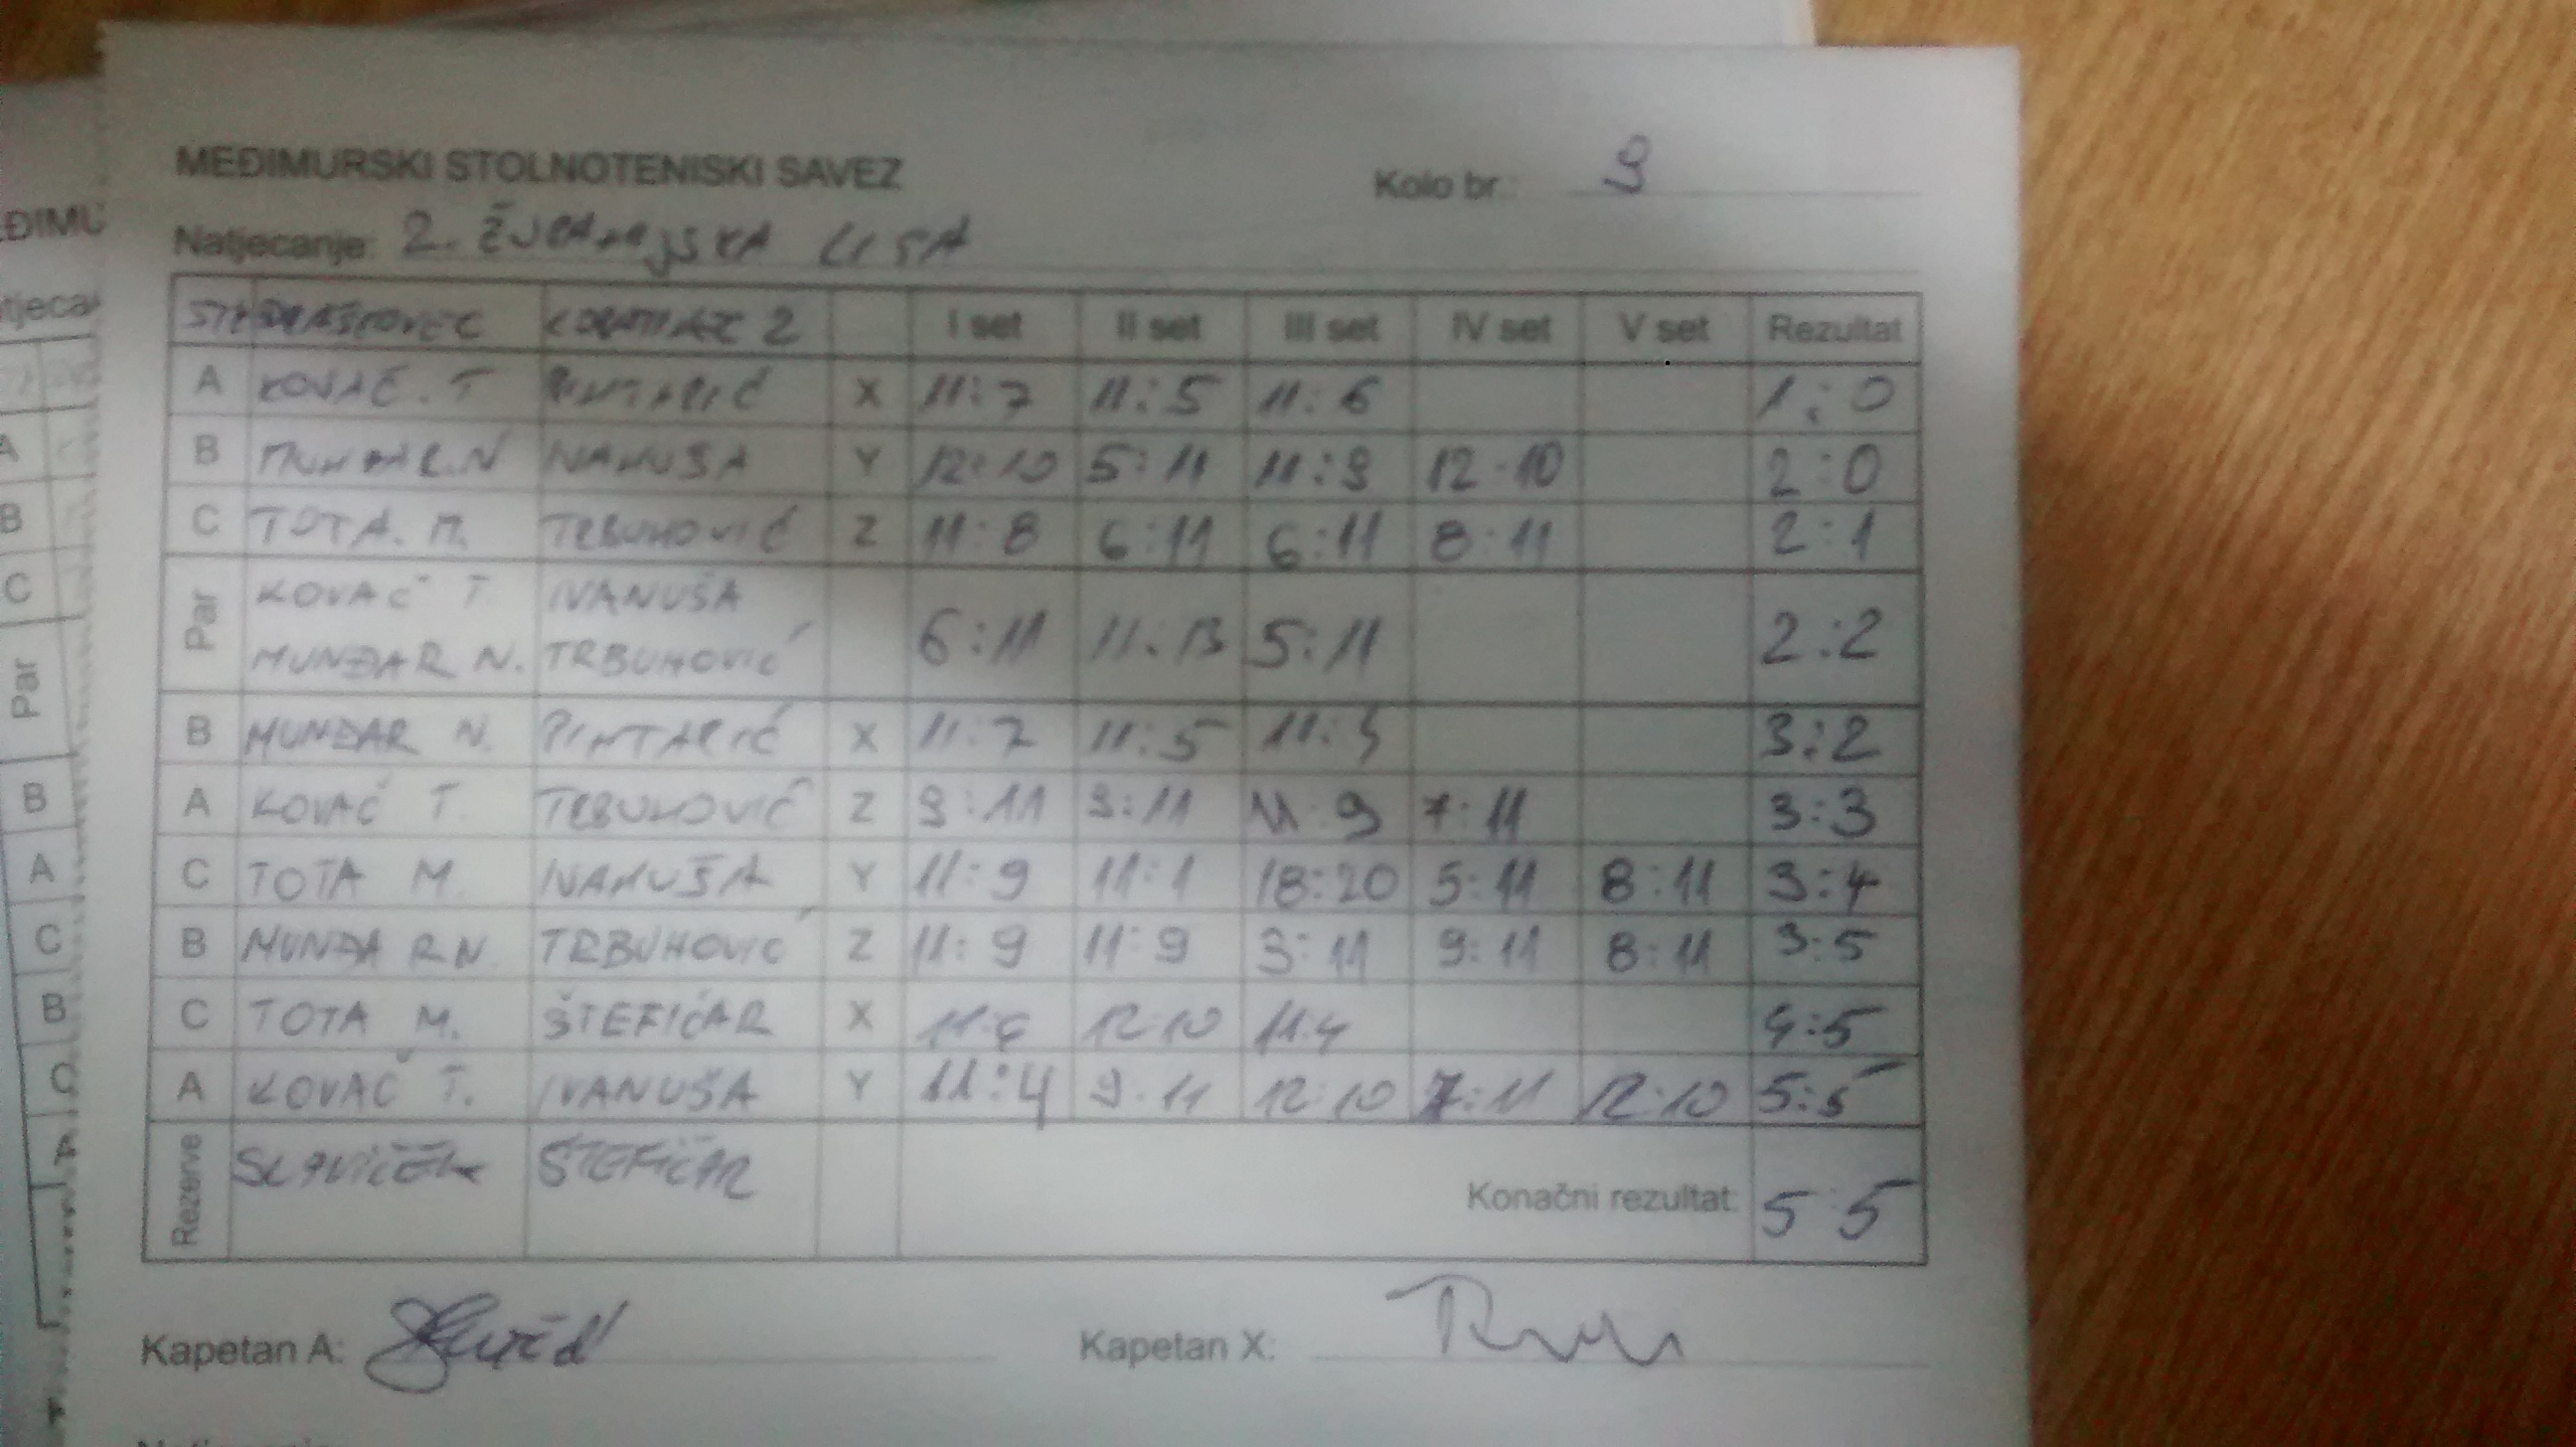 MEĐIMURSKI STOLNOTENISKI SAVEZ
Kolo br.: 9
Natjecanje: 2. ŽUPANIJSKA LIGA
DRAŠKOVEC 2 I set II set III set IV set V set Rezultat
A KOVAČ. T PINTARIĆ X 11:7 11:5 11:6 1:0
B MUNĐAR.N IVANUŠA Y 12:10 5:11 11:9 12-10 2:0
C TOTA. M. TRBUHOVIĆ Z 11:8 6:11 6:11 8:11 2:1
Par KOVAČ T. IVANUŠA
MUNĐAR N. TRBUHOVIĆ 6:11 11:13 5:11 2:2
B MUNĐAR N. PINTARIĆ X 11:7 11:5 3:2
A KOVAČ T. TRBUHOVIĆ Z 9:11 9:11 11:9 7:11 3:3
C TOTA M. IVANUŠA Y 11:9 11:1 18:20 5:11 8:11 3:4
B MUNĐAR N. TRBUHOVIĆ Z 11:9 11:9 3:11 9:11 8:11 3:5
C TOTA M. ŠTEFIČAR X 12:10 11:4 4:5
A KOVAČ T. IVANUŠA Y 11:4 9:11 12:10 7:11 12:10 5:5
Rezerve SLAVIČEK ŠTEFIČAR
Konačni rezultat: 5:5
Kapetan A:
Kapetan X:
ĐIMU
tjeca
A
B
C
Par
B
A
C
B
C
A